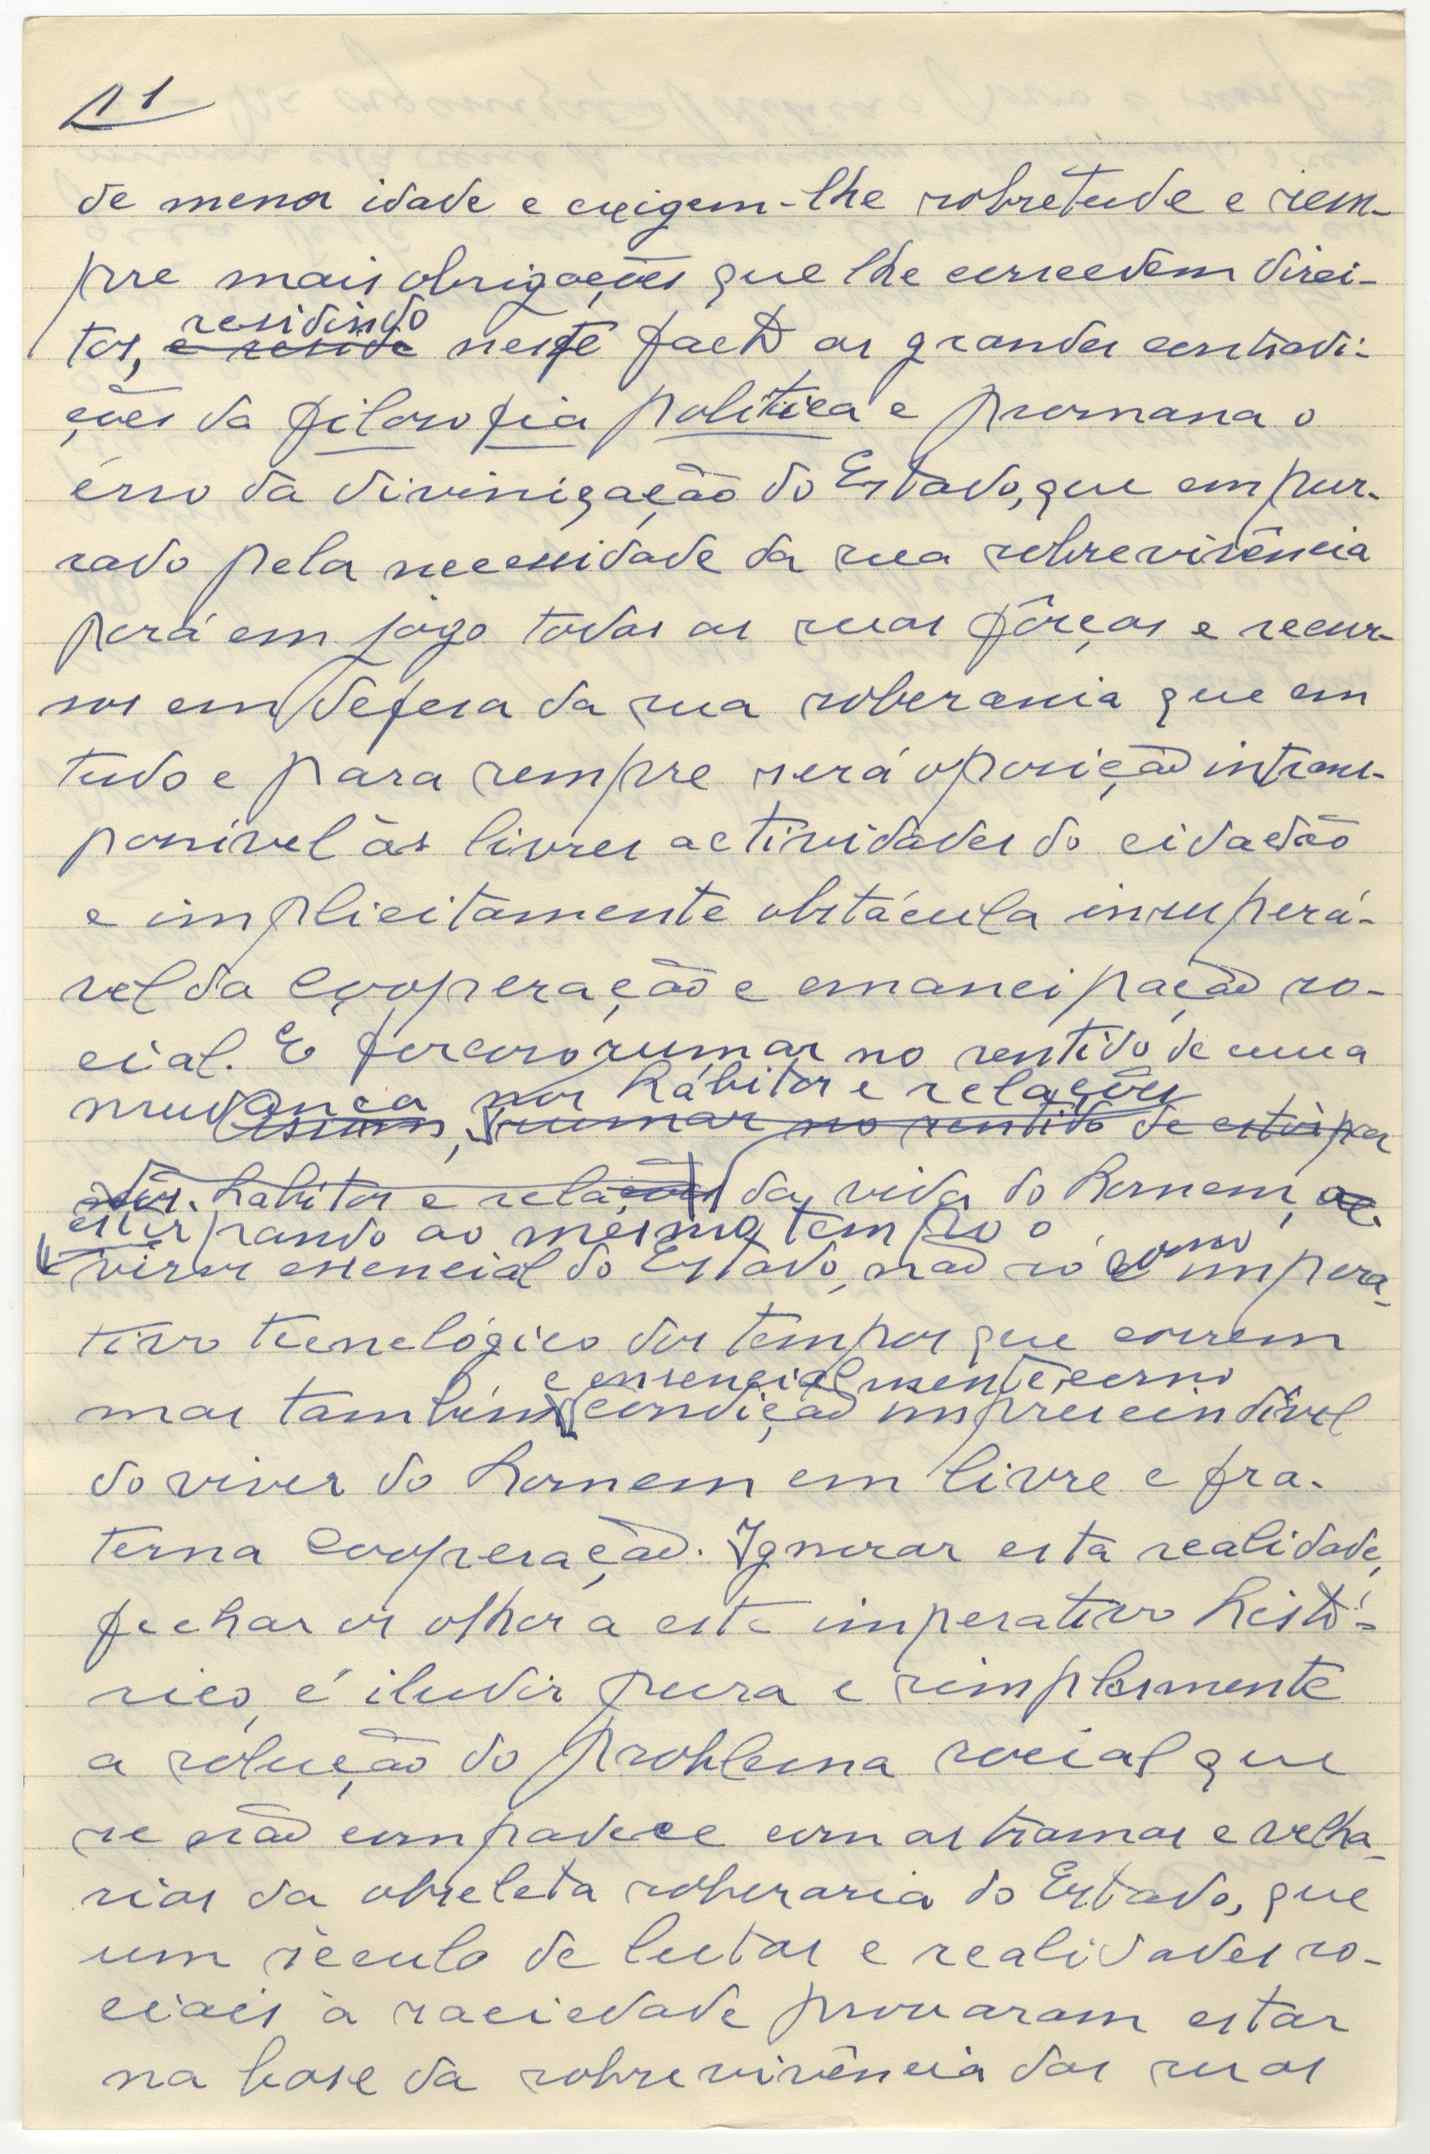 11
de menor idade e exigem-lhe sobretude e sem-
pre mais obrigações que lhe concedem direi-
tos, e reside residindo neste facto as grandes contradi-
ções da filosofia política e promana o
érro da divinização do Estado, que empur-
rado pela necessidade da sua sobrevivência
porá em jôgo todas as suas fôrças e recur-
sos em defesa da sua soberania que em
tudo e para sempre será oposição intrans-
ponível às livres actividades do cidadão
e implicitamente obstácula insuperá-
vel da cooperação e emancipação so-
cial. E forçoso rumar no sentido de uma
mudança, nos hábitos e relações
rumar no sentido de estirpar
hábitos e relações da vida do homem,
estirpando ao mesmo tempo o
viros essencial do Estado, não só como impera-
tivo tecnelógico dos tempos que correm
mas também e ensencialmente, como condição imprescindível
do viver do homem em livre e fra-
terna cooperação. Ignorar esta realidade,
fechar os olhos a este imperativo histó-
rico, é iludir pura e simplesmente
a solução do problema social que
se não compadece com as tramas e velha-
rias da obseleta soberaria do Estado, que
um século de lutas e realidades so-
ciais à saciedade provaram estar
na base da sobrevivência das suas